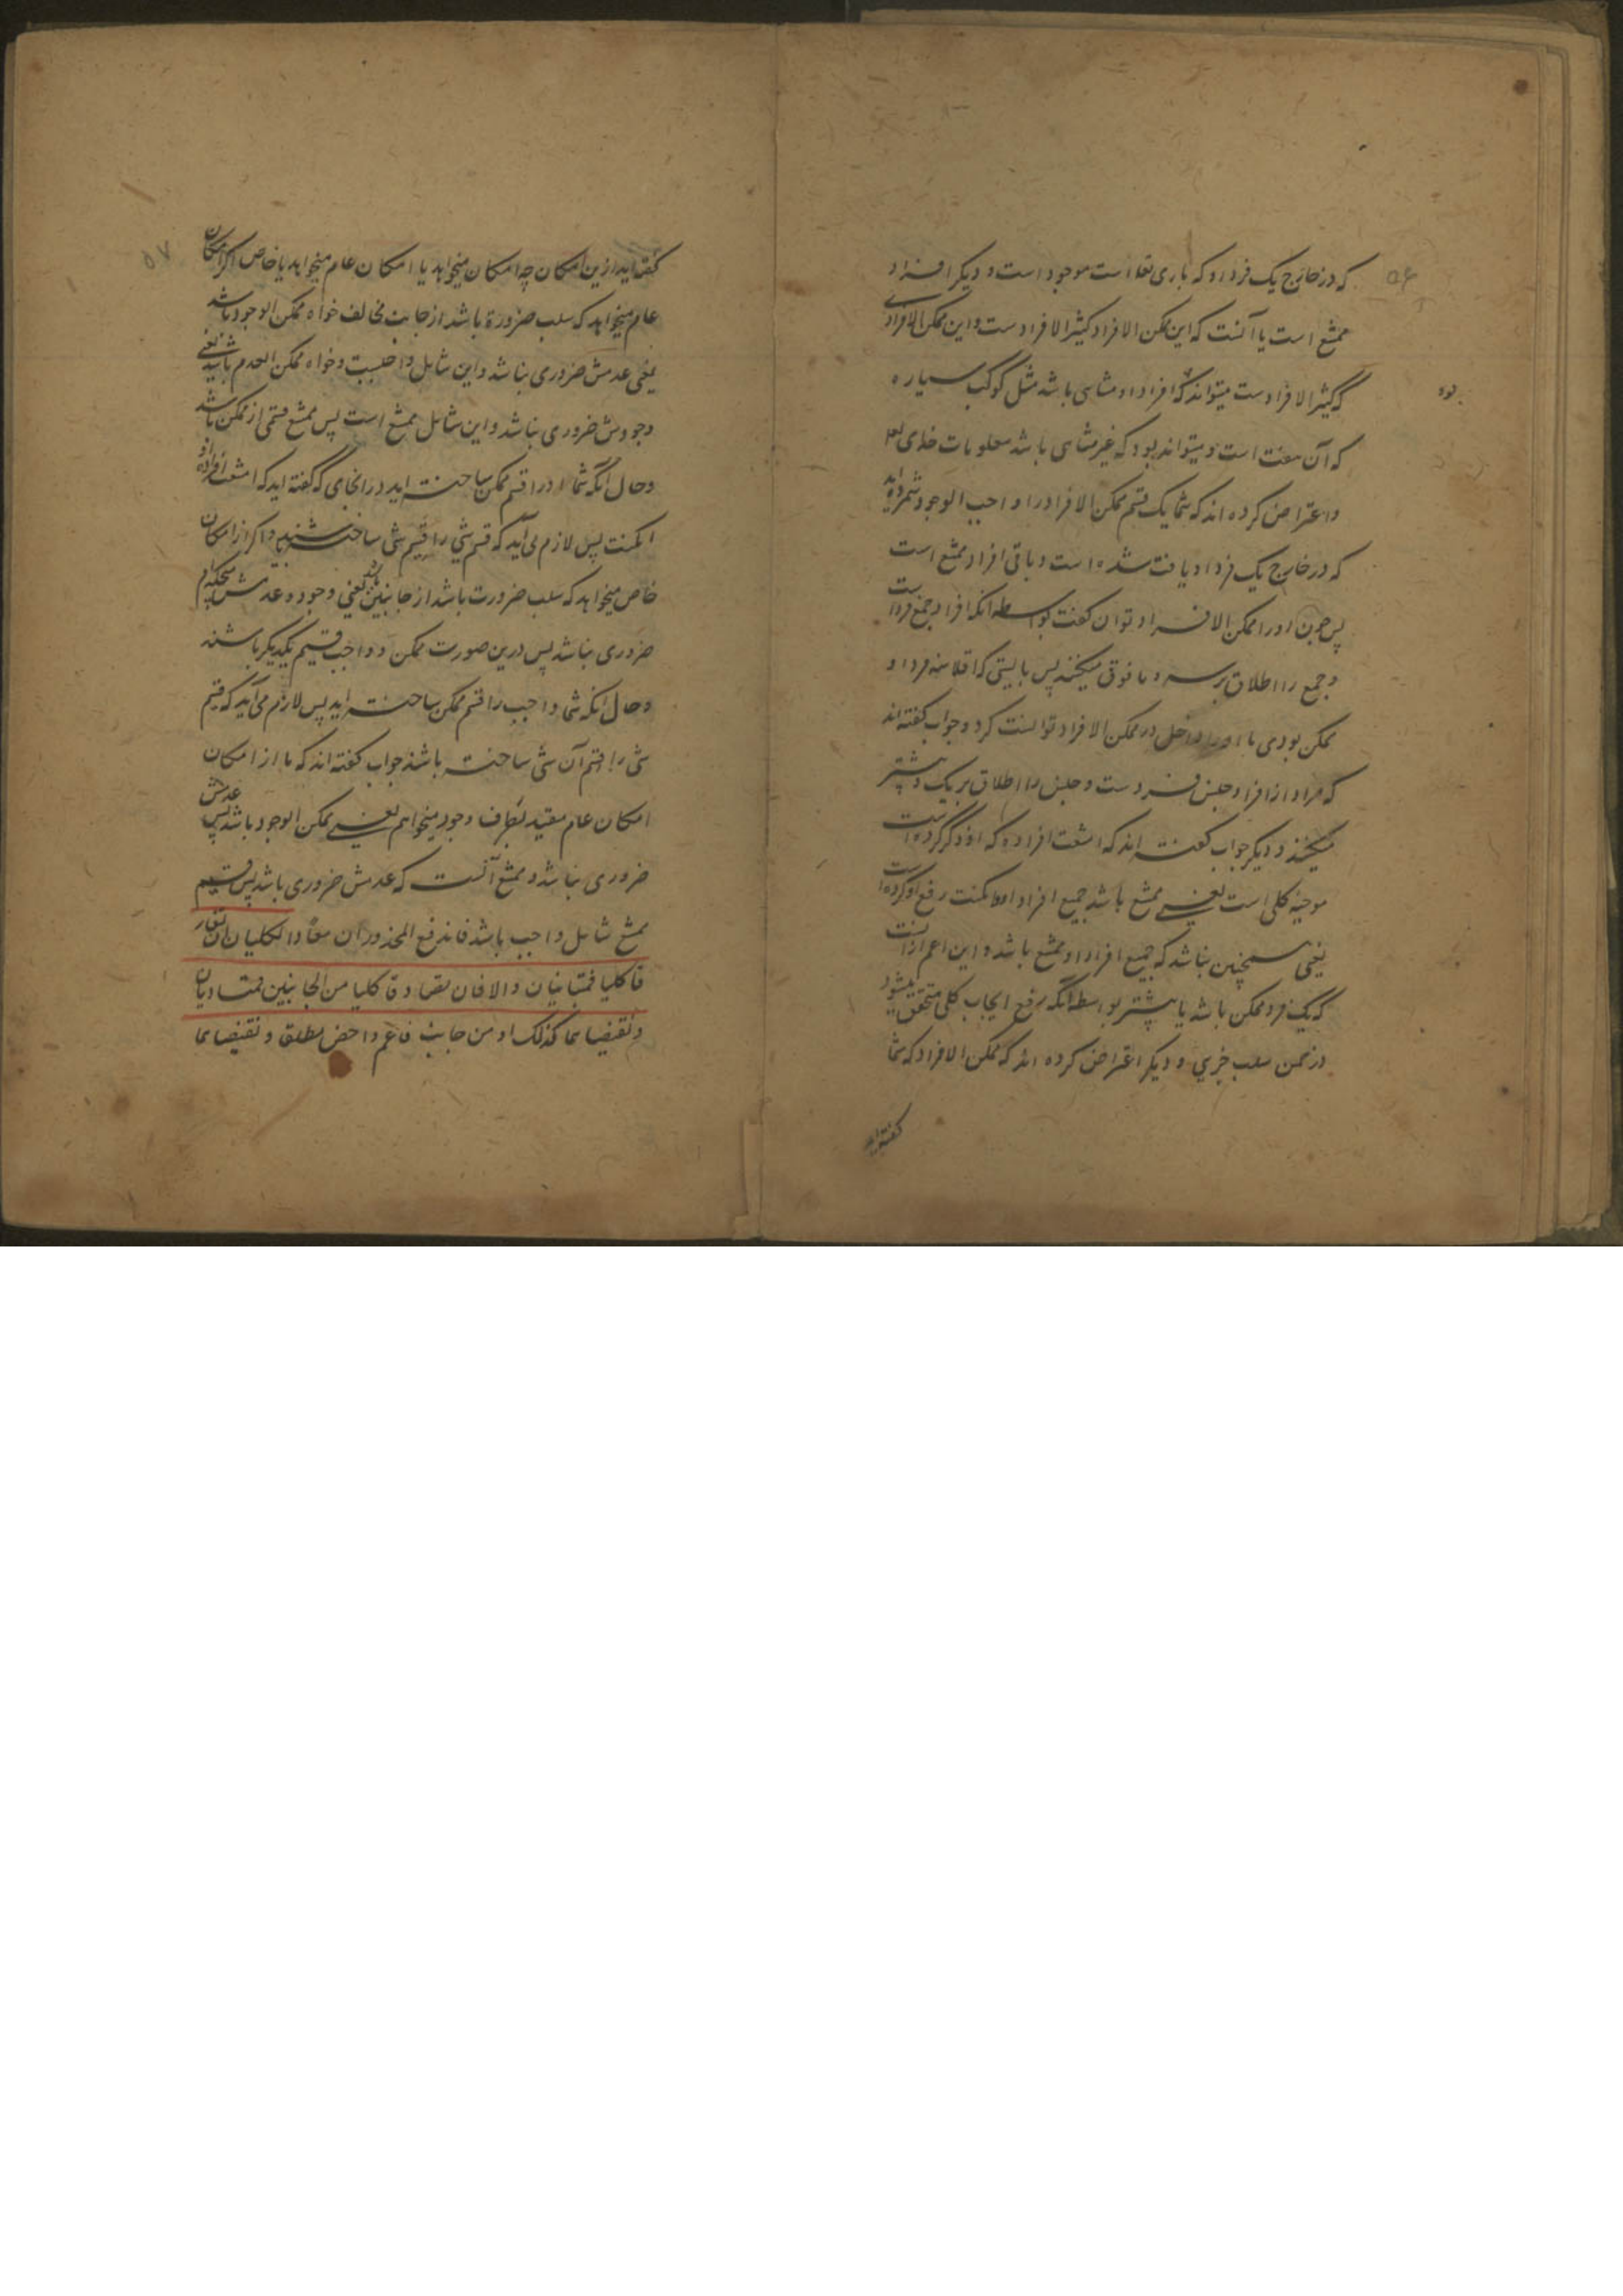 ۵۶
که در خارج یک فرد او که باری تعا است موجود است و دیگر افراد
ممتنع است یا آنست که این ممکن الافراد کثیر الافراد ست و این ممکن الافرادی
که کثیر الافراد ست میتواند که افراد او متناهی باشد مثل کوکب سیاره
که آن هفت است و میتواند بود که غیر متناهی باشد معلومات خدای تعا
و اعتراض کرده اند که شما یک قسم ممکن الافراد را واجب الوجود شمرده اید
که در خارج یک فرد او یافت شده است و باقی افراد ممتنع است
پس چون او را ممکن الافراد توان گفت بواسطه آنکه افراد جمع فرد است
و جمع را اطلاق بر سه و ما فوق میکنند پس بایستی که اقلا سه فرد او
ممکن بودی تا او را داخل در ممکن الافراد توانست کرد و جواب گفته اند
که مراد از افراد جنس فرد ست و جنس را اطلاق بر یک و بیشتر
میکنند و دیگر جواب گفته اند که امتنعت افراده که او ذکر کرده است
موجبه کلی است یعنی ممتنع باشد جمیع افراد او امکنت رفع او کرده است
یعنی همچنین نباشد که جمیع افراد او ممتنع باشد و این اعم از آنست
که یک فرد ممکن باشد یا بیشتر بواسطه آنکه رفع ایجاب کلی متحقق میشود
در ضمن سلب جزیی و دیگر اعتراض کرده اند که ممکن الافراد که شما
گفته اید
۵۷
گفته اید ازین امکان چه امکان میخواهد یا امکان عام میخواهد یا خاص اگر امکان
عام میخواهد که سلب ضرورة باشد از جانب مخالف خواه ممکن الوجود باشد
یعنی عدمش ضروری نباشد و این شامل واجبست و خواه ممکن العدم باشد یعنی
وجودش ضروری نباشد و این شامل ممتنع است پس ممتنع قسمی از ممکن باشد
و حال آنکه شما او را قسیم ممکن ساخته اید در انجای که گفته اید که امتنعت افراده او
امکنت پس لازم می آید که قسم شی را قسیم شی ساخته شنید و اگر از امکان
خاص میخواهد که سلب ضرورت باشد از جانبین یعنی وجود و عدمش هیچکدام
ضروری نباشد پس درین صورت ممکن و واجب قسیم یکدیگر باشند
و حال آنکه شما واجب را قسم ممکن ساخته اید پس لازم می آید که قسیم
شی را قسم آن شی ساخته باشند جواب گفته اند که ما از امکان
امکان عام مقید بطرف وجود میخواهم یعنی ممکن الوجود باشد پس عدمش
ضروری نباشد و ممتنع آنست که عدمش ضروری باشد پس قسیم
ممتنع شامل واجب باشد فاندفع المحذوران معًا والکلیان ان تفار
قا کلیا فمتباینان والا فان تصاد قا کلیا من الجانبین فمتساویان
و نقیضاهما کذلک او من جانب فاعم و اخص مطلقا و نقیضاهما